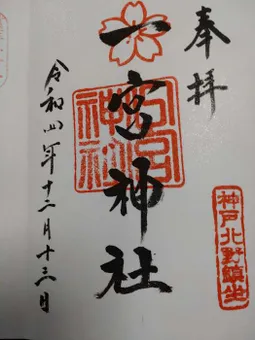 奉拝
一宮神社
令和四年十二月十三日
神戸北野鎮坐